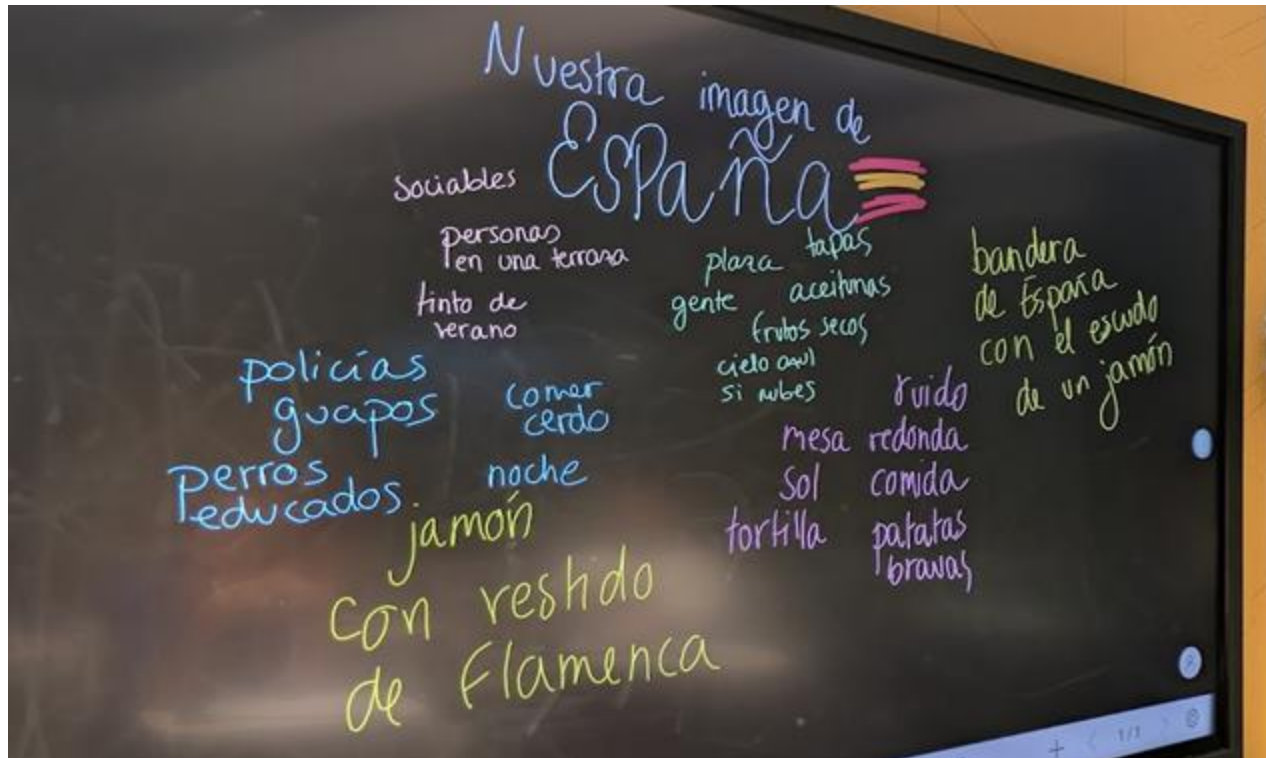 Nuestra imagen de
España
sociables
personas
en una terrasa
tinto de
verano
plaza tapas
gente aceitunas
frutos secos
cielo azul
si nubes
bandera
de España
con el escudo
de un jamón
policías
guapos
perros
educados
comer
cerdo
noche
ruido
mesa redonda
sol comida
tortilla patatas
bravas
jamón
con vestido
de Flamenca
1/1